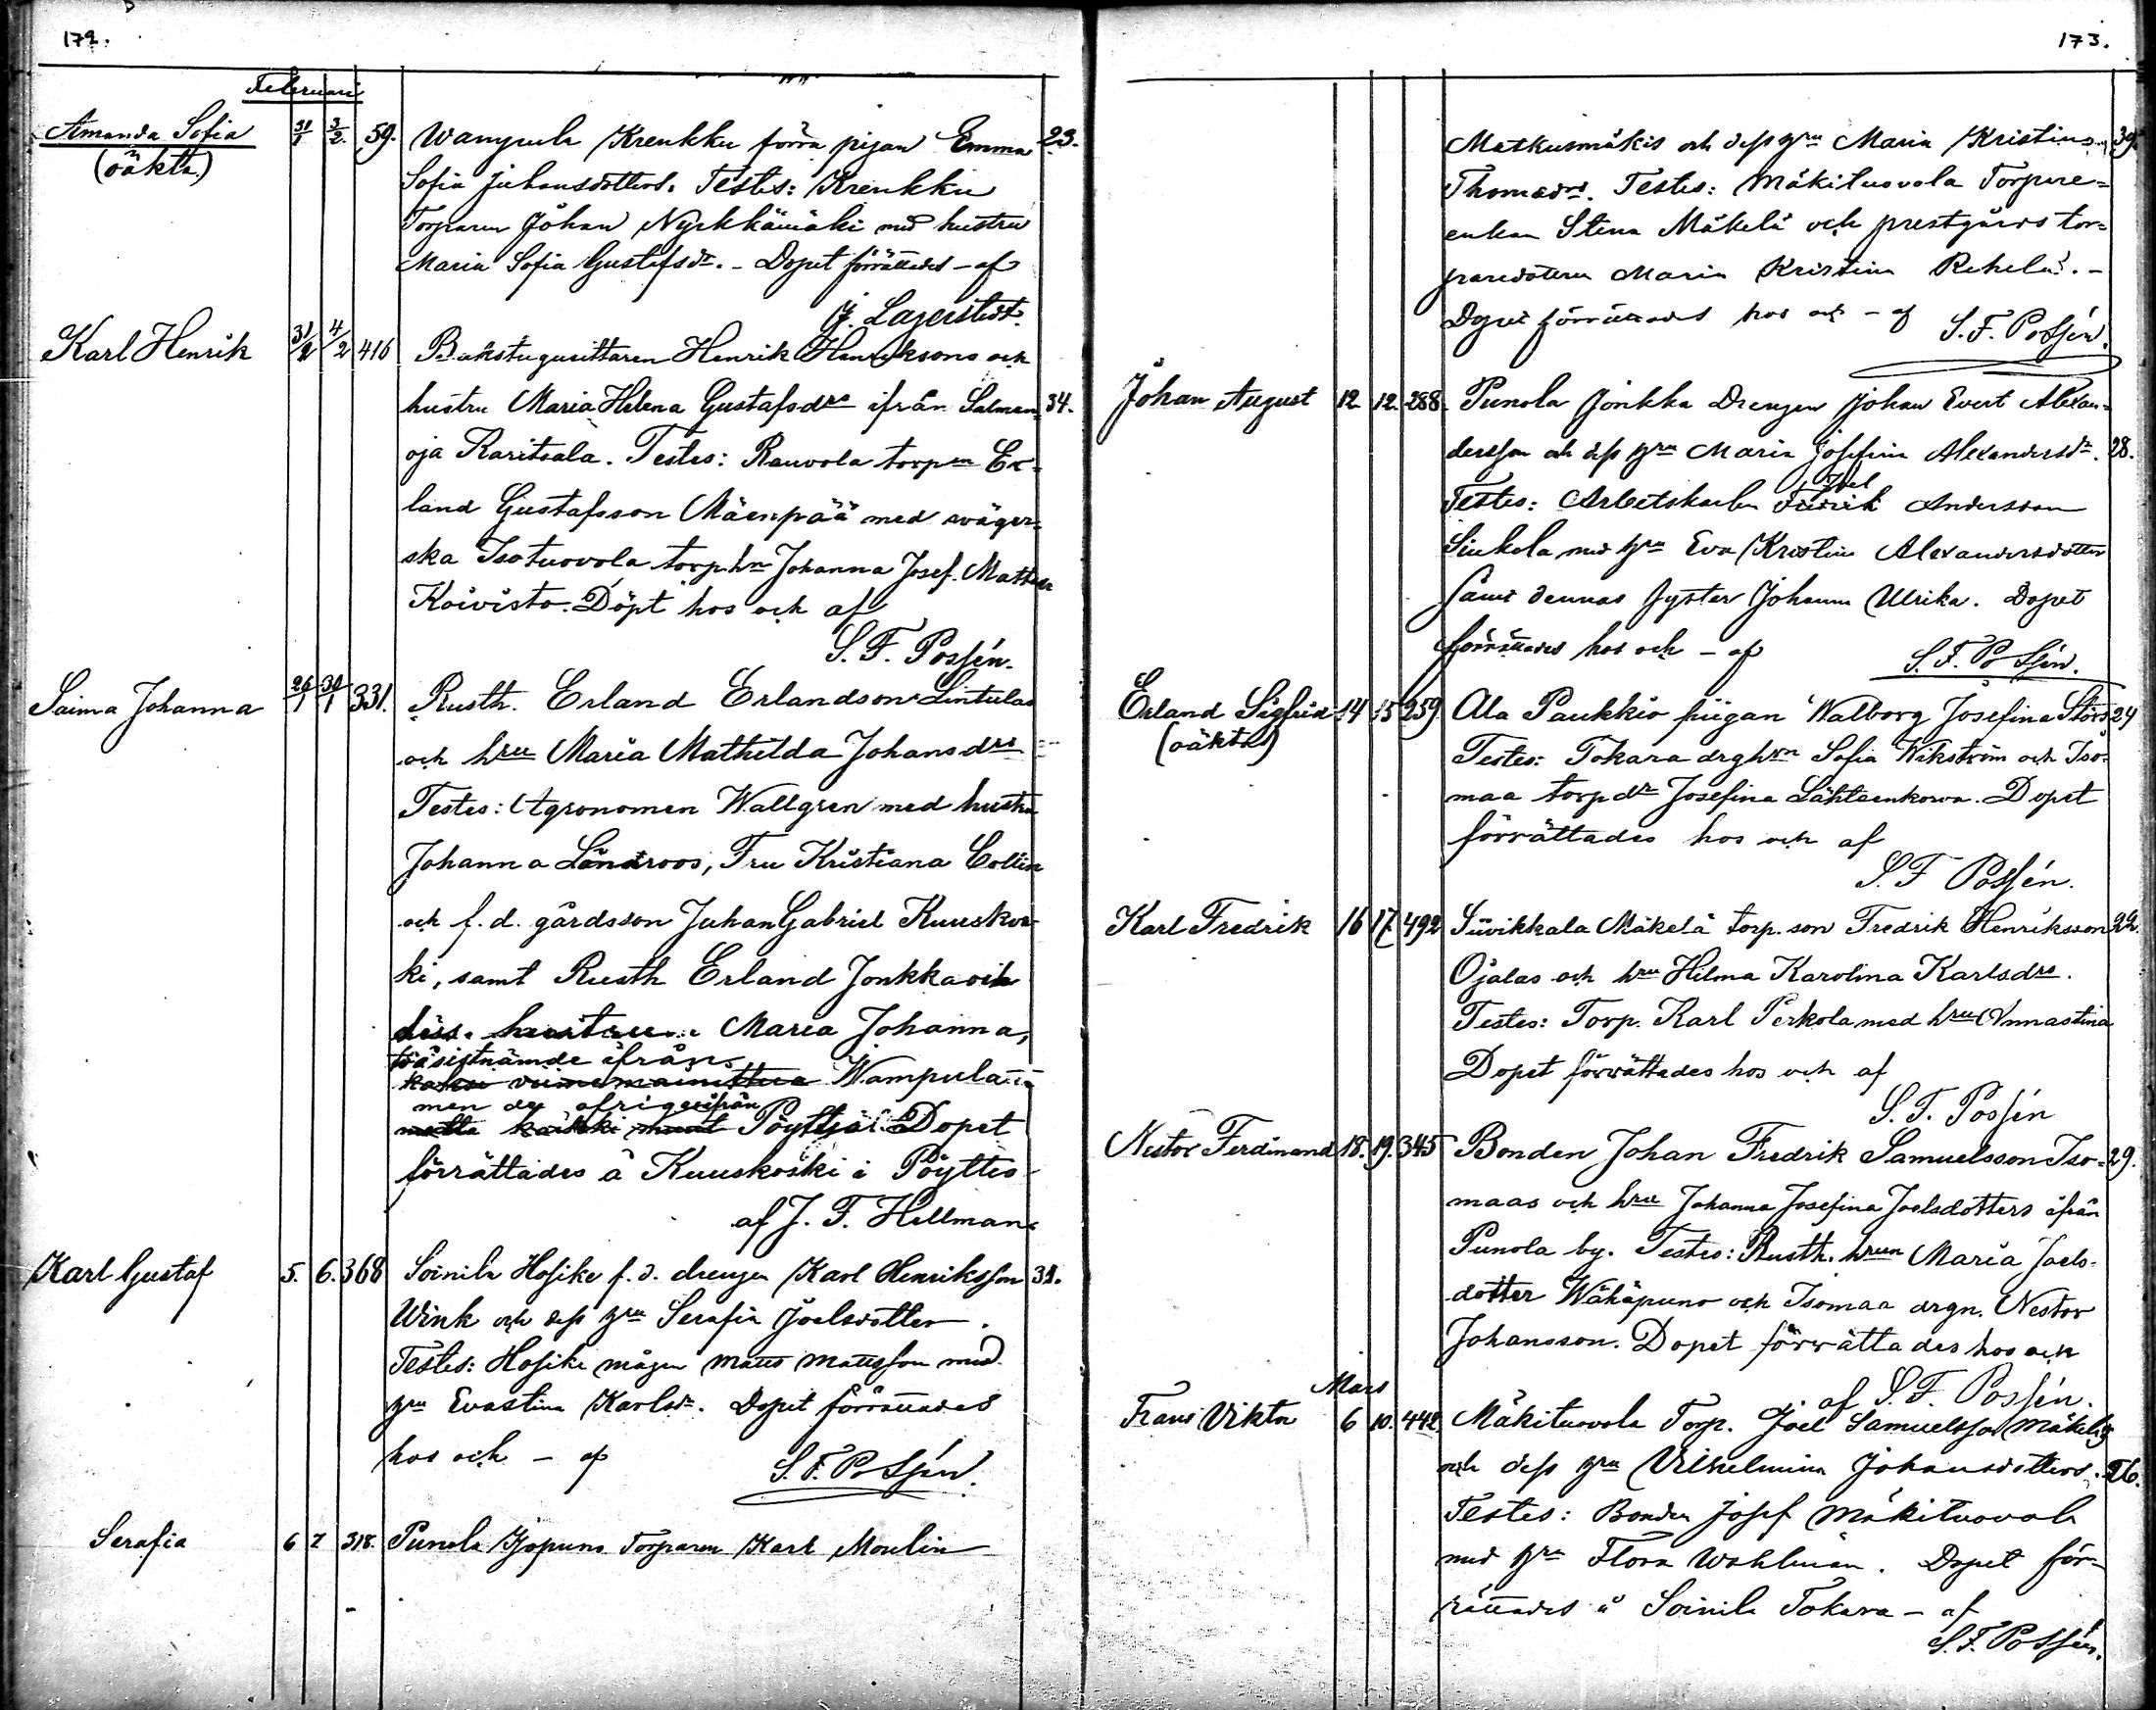 172.
Februari
Amanda Sofia 31/1 3/2. 59. Wampula Krenkku förra pigan Emma 23.
(oäkta) Sofia Juhansdotters. Testes: Krenkku
Torparen Johan Nyrkkämäki med hustru
Maria Sofia Gustafsdr. - Dopet förrättades - af
J. Lagerstedt.
Karl Henrik 31/2 4/2 416 Bakstugusittaren Henrik Henriksons och
hustru Maria Helena Gustafsdrs ifrån Salmen 34.
oja Karitsala. Testes: Rauvola torpen Er-
land Gustafsson Mäenpää med swäger-
ska Isotuovola torp.hn Johanna Josef. Mattsdr
Koivisto. Döpt hos och af
S. F. Possén.
Saima Johanna 26/1 30/1 331. Rusth. Erland Erlandsons Lintulas
och hru Maria Mathilda Johansdrs
Testes: Agronomen Wallgren med hustru
Johanna Lindroos, Fru Kristiana Collin
och f.d. gårdsson Juhan Gabriel Kuuskos-
ki, samt Rusth Erland Jonkka och
dess hustru Maria Johanna,
twåsistnämde ifrån
kaksi viimemainittua Wampula
men de öfrige ifrån
mutta kaikki muut Pöytis. Dopet
förrättades å Kuuskoski i Pöytis
af J. F. Hellman.
Karl Gustaf 5. 6. 368 Soinila Hosike f.d. drengen Karl Henriksson 31.
Wink och dess hru Serafia Joelsdotter.
Testes: Hosike mågen Matts Mattsson med
hru Evastina Karlsdr. Dopet förrättades
hos och - af S. F. Possén.
Serafia 6 7 318. Punola Yopuno Torparen Karl Moulin
173.
Matkusmäkis och dess hru Maria Kristina 39.
Thomasdrs. Testes: Mäkituovola Torpare-
enkan Stina Mäkelä och prestgårds tor-
paredottren Maria Kristina Rekelä. -
Dopet förrättades hos och - af S. F. Possén.
Johan August 12 12. 288. Punola Jonkka Drengen Johan Evert Alexan-
dersson och dess hru Maria Josefina Alexandersdr. 28.
Joel
Testes: Arbetskarlen Fredrik Andersson
Sinkola med hru Eva Kristina Alexandersdotter
samt dennas syster Johanna Ulrika. Dopet
förrättades hos och - af S. F. Possén.
Erland Sigfrid 14 15 259 Ala Paukkio piigan Walborg Josefina Störs 24
(oäkta) Testes: Tokara drghrn Sofia Wikström och Iso-
maa torpdr Josefina Lähteenkorva. Dopet
förrättades hos och af
S. F. Possén.
Karl Fredrik 16 17. 492 Siivikkala Mäkelä torp. son Fredrik Henriksson 22.
Ojalas och hru Hilma Karolina Karlsdrs.
Testes: Torp. Karl Perkola med hru Annastina
Dopet förrättades hos och af
S. F. Possén
Nestor Ferdinand 18. 19. 345 Bonden Johan Fredrik Samuelsson Iso- 29.
maas och hru Johanna Josefina Joelsdotters ifrån
Punola by. Testes: Rusth. hrun Maria Joels-
dotter Wähäpuno och Isomaa drgn. Nestor
Johansson. Dopet förrättades hos och
af S. F. Possén.
Mars
Frans Viktor 6 10. 442 Mäkituovola Torp. Joel Samuelsson Mäkelä
och dess hru Vilhelmina Johansdotters. 26.
Testes: Bonden Josef Mäkituovola
med hru Flora Wahlman. Dopet för-
rättades å Soinila Tokara - af
S. F. Possén.